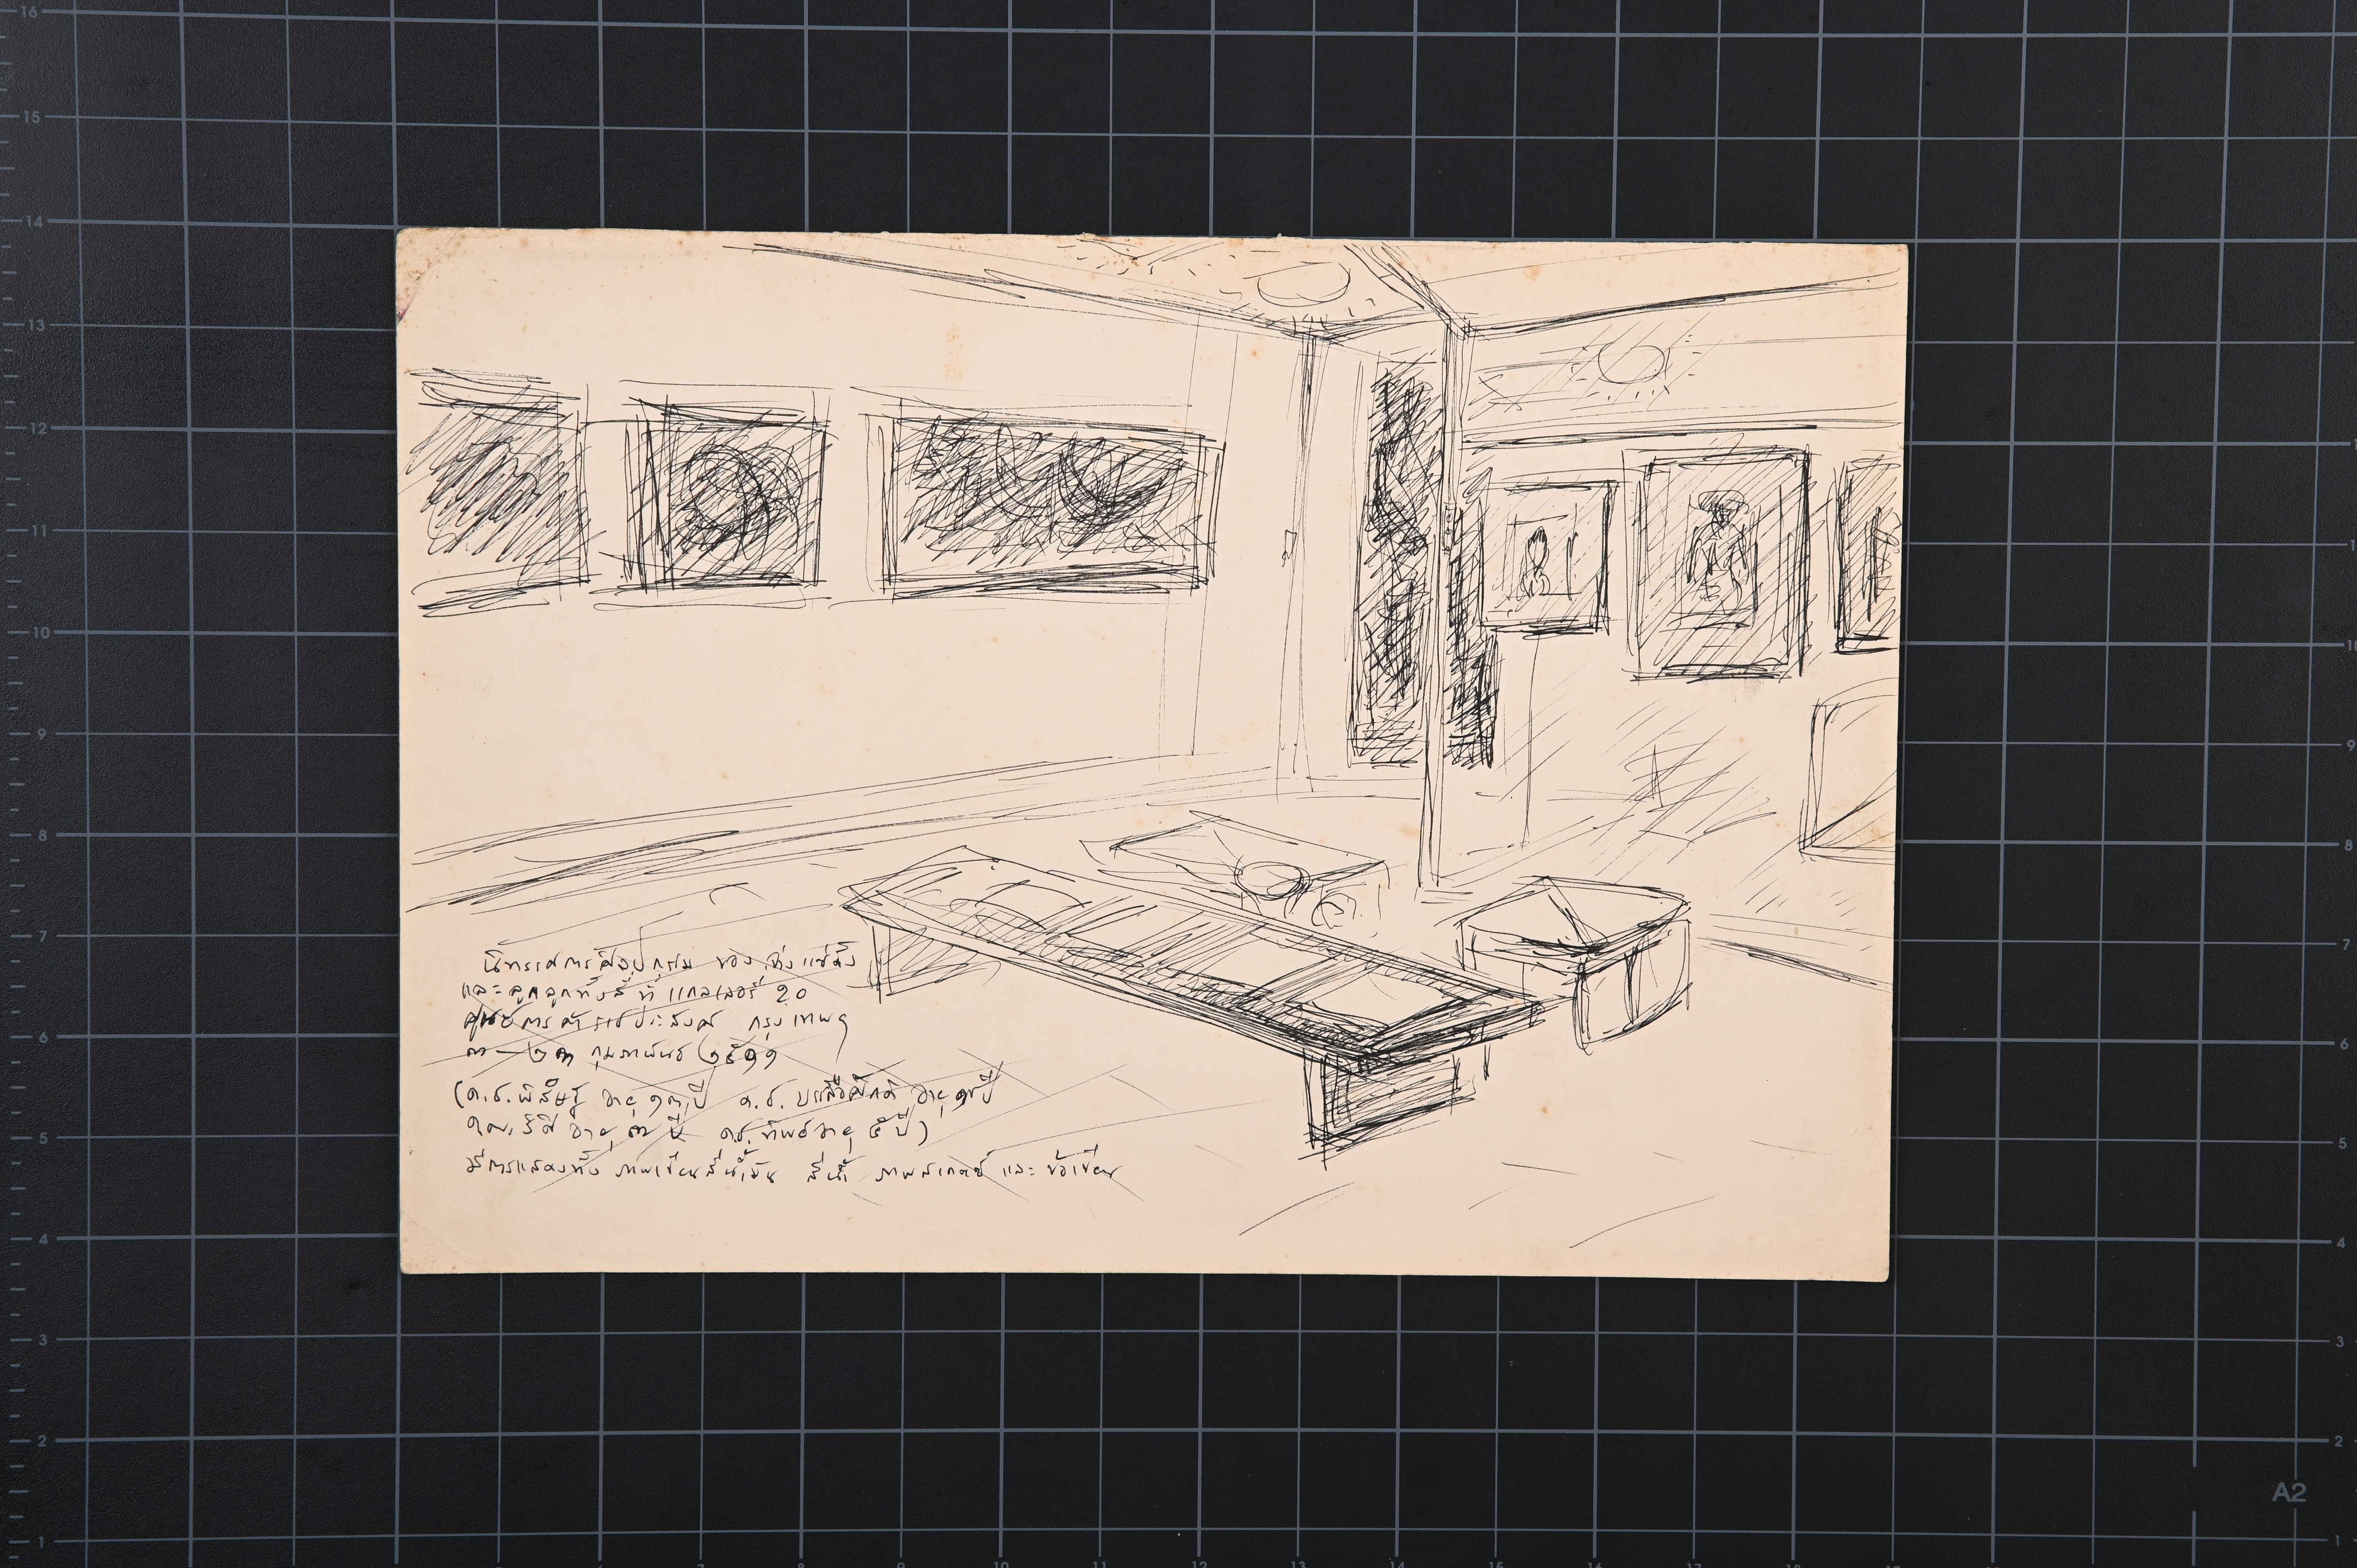 นิทรรศการศิลปกรรม ของ จ่าง แซ่ตั้ง
และลูกลูกทั้งสี่ ที่ แกลเลอรี่ 20
ศูนย์การค้าราชประสงค์ กรุงเทพฯ
๓ — ๒๓ กุมภาพันธ์ ๒๕๑๑
(ด.ช. พิสิษฐ์ อายุ ๑๓ ปี ด.ช. อายุ ปี
อายุ ๓ ปี ด.ช. ทิพย์ อายุ ๕ ปี)
มีการแสดงทั้ง ภาพเขียนสีน้ำมัน สีน้ำ ภาพสเกตซ์ และ ข้อเขียน
A2